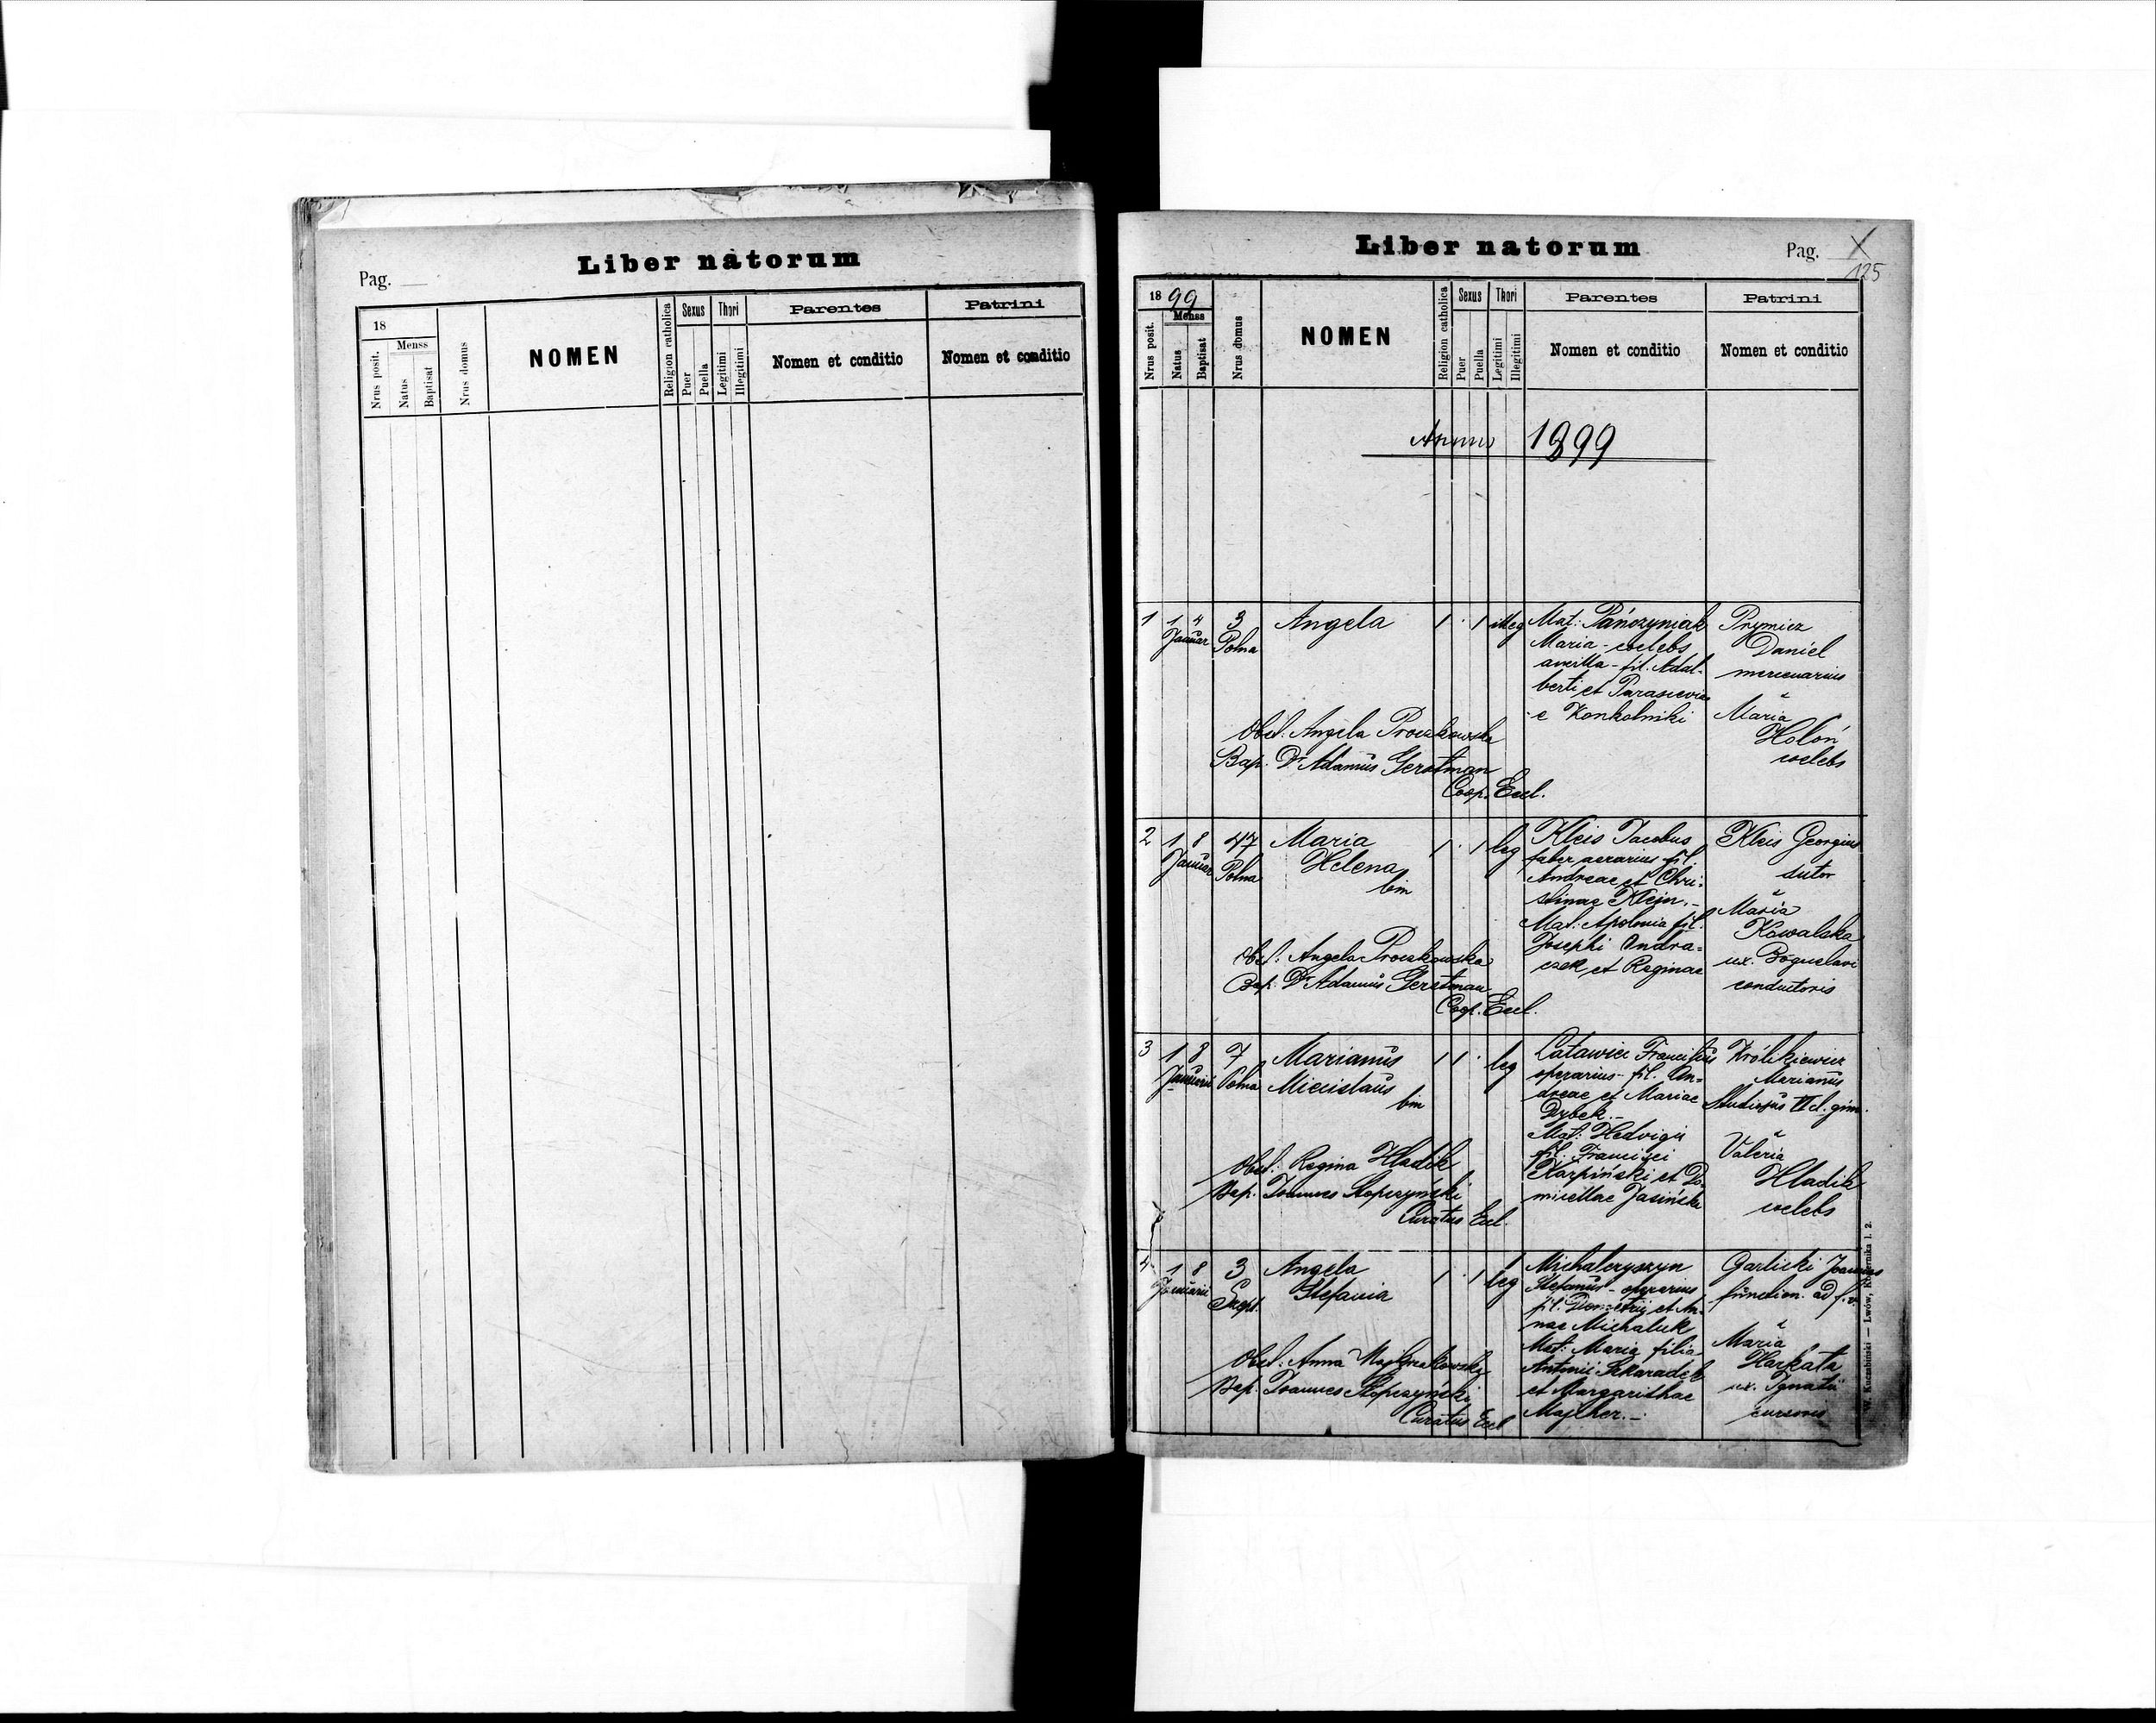 Liber natorum
Pag.
18
Menss
Nrus posit.
Natus
Baptisat
Nrus domus
NOMEN
Religion catholica
Sexus
Puer
Puella
Thori
Legitimi
Illegitimi
Parentes
Nomen et conditio
Patrini
Nomen et conditio
Liber natorum
Pag.
125
1899
Menss
Nrus posit.
Natus
Baptisat
Nrus domus
NOMEN
Religion catholica
Sexus
Puer
Puella
Thori
Legitimi
Illegitimi
Parentes
Nomen et conditio
Patrini
Nomen et conditio
Anno 1899
1
1 4
Januar
3
Polna
Angela
1 . 1 illeg
Mat: Pańczyniak
Maria - coelebs
ancilla - fil. Adal-
berti et Parasceviae
e Konkolniki
Prymicz
Daniel
mercenarius
Maria
Holoń
coelebs
Obst: Angela Proczkowska
Bap. Dr Adamus Gerstman
Coop. Eccl.
2
1 8
Januar
47
Polna
Maria
Helena
bin
1 . 1 leg
Kleis Jacobus
faber aerarius fil.
Andreae et Chri-
stinae Klein.-
Mat: Apolonia fil.
Josephi Andra-
czek et Reginae
Kleis Georgius
sutor
Maria
Kowalska
ux. Boguslavi
conductoris
Obst: Angela Proczkowska
Bap. Dr Adamus Gerstman
Coop. Eccl.
3
1 8
Januarii
7
Polna
Marianus
Miecislaus
bin
1 1 . leg
Latawiec Franciscus
operarius - fil. An-
dreae et Mariae
Dybek.-
Mat: Hedvigis
fil. Francisci
Karpiński et Do-
micellae Jasińska
Królikiewicz
Marianus
Studiosus VI cl. gim.
Valeria
Hladik
coelebs
Obst: Regina Hladik
Bap. Joannes Stopczyński
Curatus Eccl.
4
1 8
Januarii
3
Angela
Stefania
1 . 1 leg
Michalczyszyn
Stefanus - operarius
fil. Demetrii et An-
nae Michaluk
Mat: Maria filia
Antonii Szkaradek
et Margarithae
Majcher.-
Garlicki Joannes
Maria
Harkata
ux. Ignatii
cursoris
Obst: Anna
Bap. Joannes Stopczyński
Curatus Eccl
W. Kuczabiński — Lwów, Kopernika l. 2.